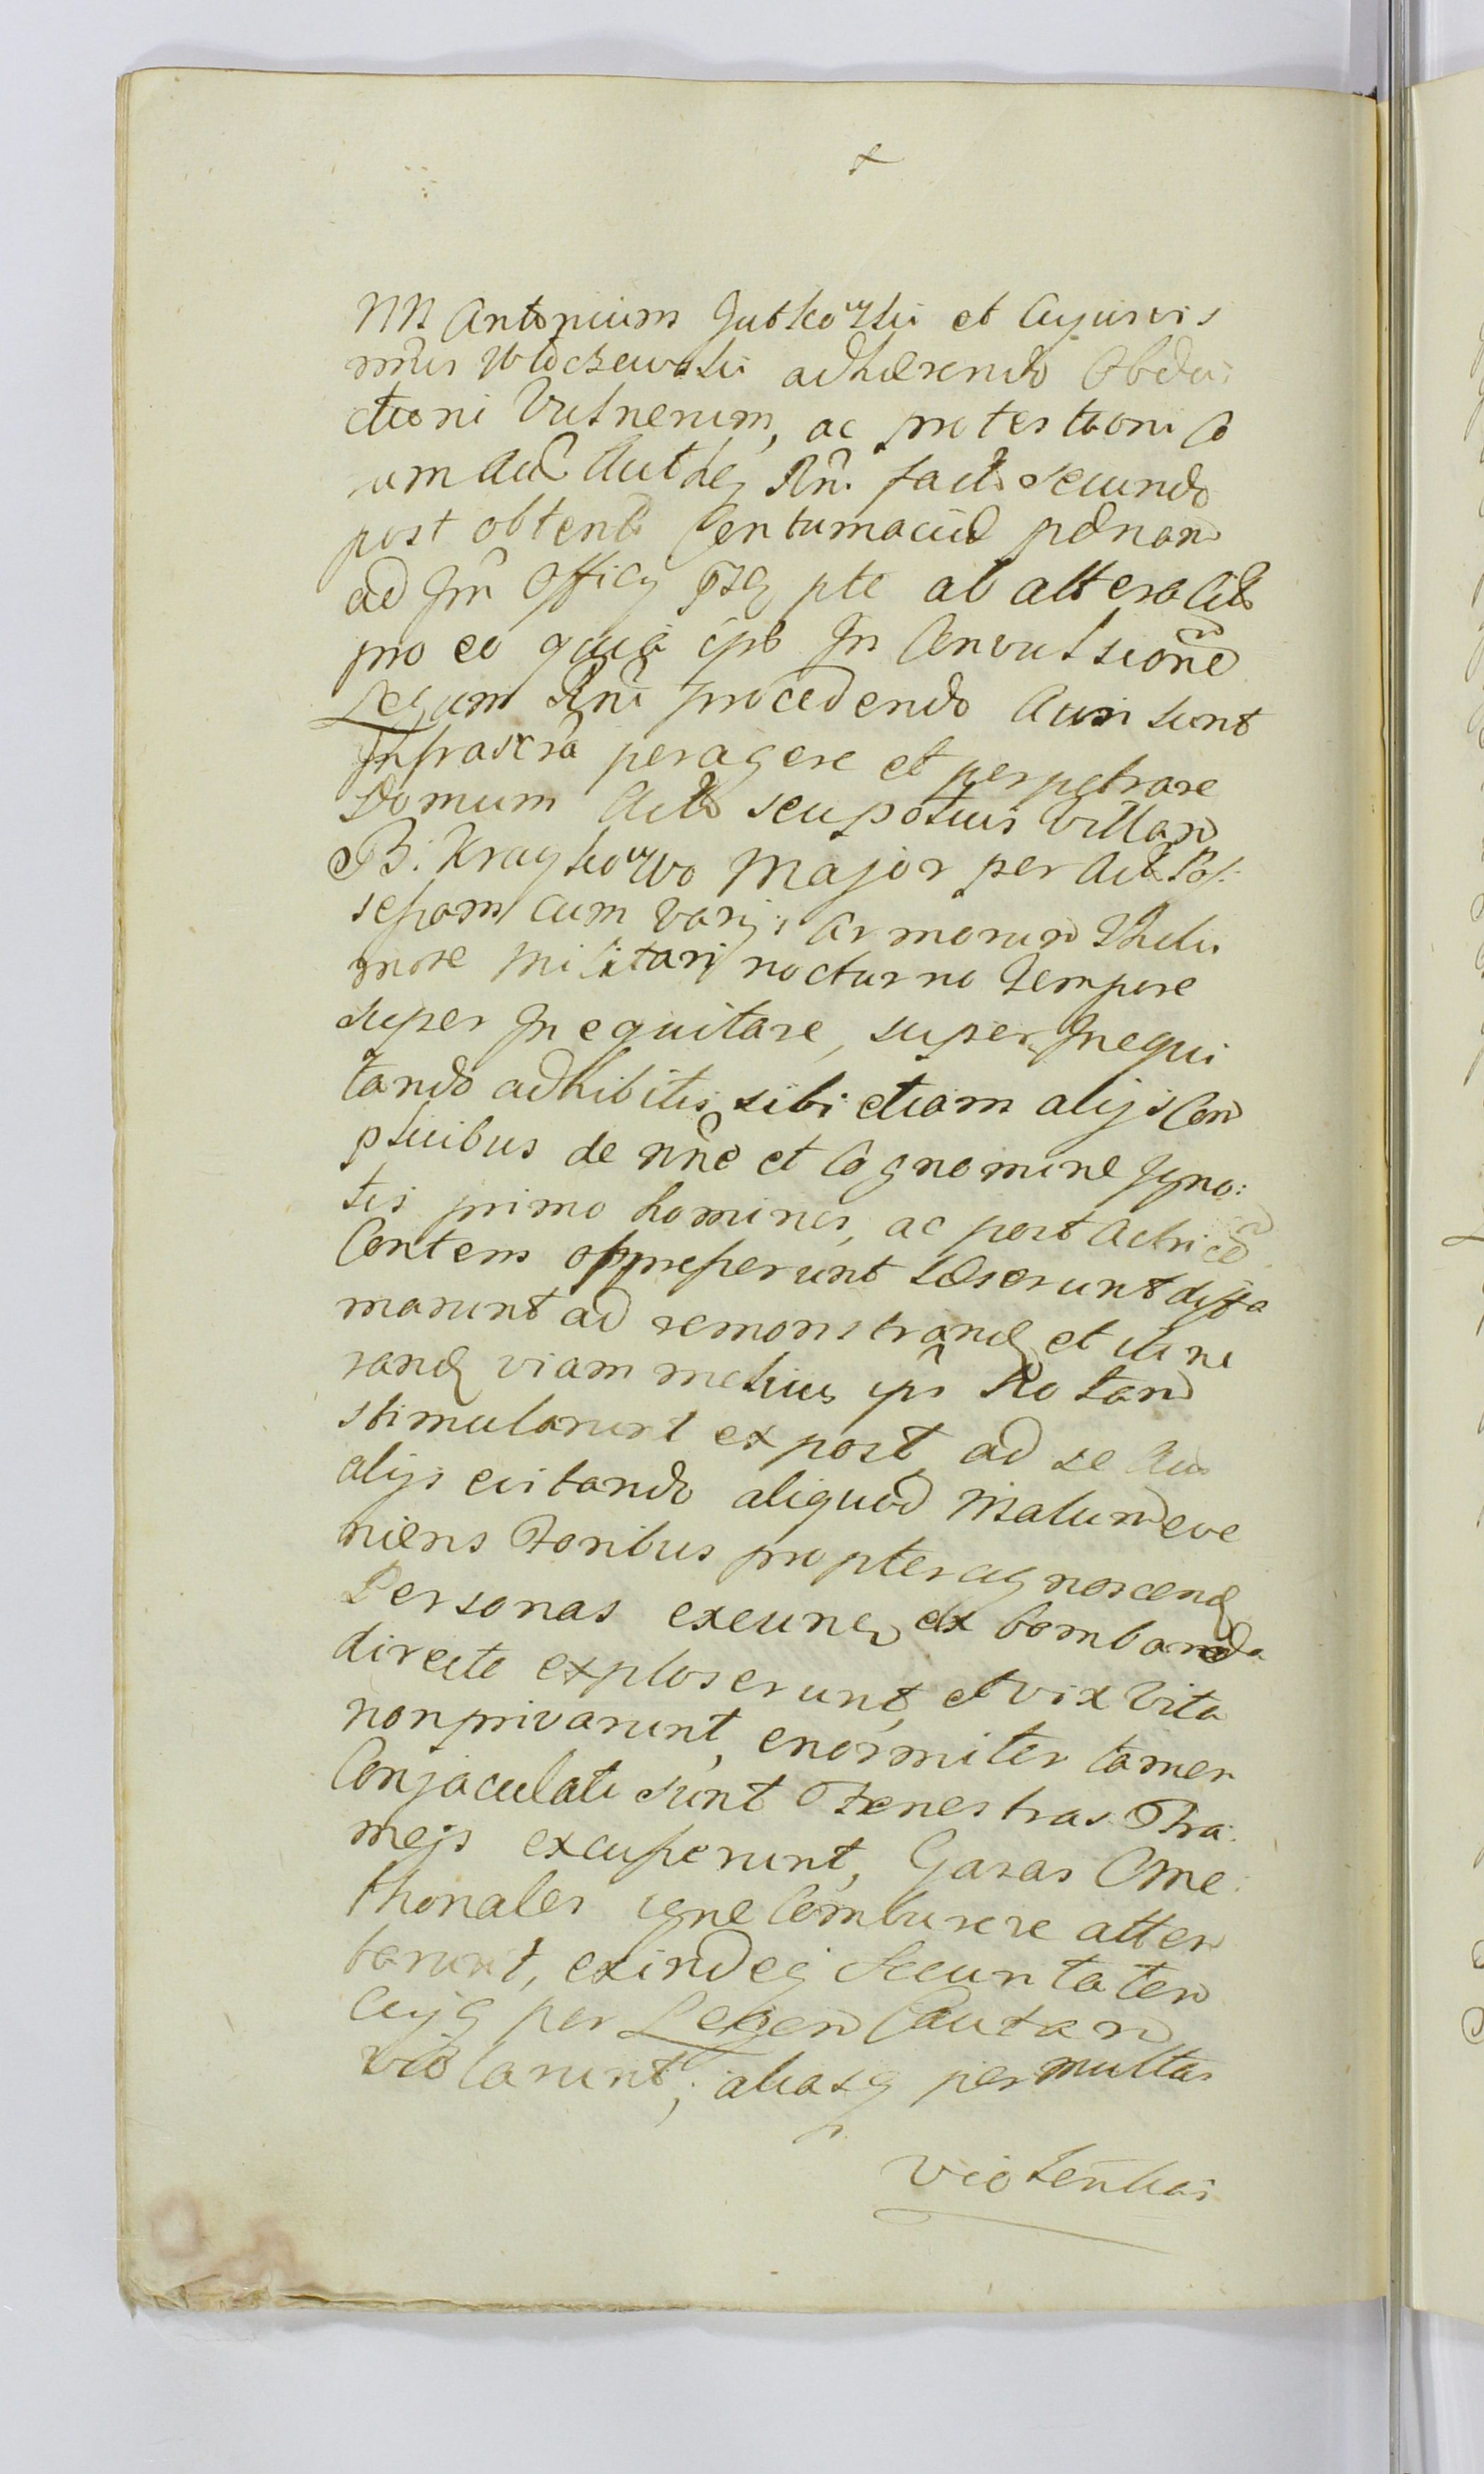 NN Antonium Gutkowski et Cujusvis
mris Wloczewski adhaerendo Obdu:
ctioni Vulnerum, ac protestationi Co
ram Act Authen Rni facto secundo
post obtent Contumaciae paenam
ad Jm Officij pte ab altera Citt
pro eo quia ipsi In Convulsione
Legum Rni procedendo Ausi sunt
Infrascra peragere et perpetrare
Domum Act seu potius Villam
B. Kraykowo Major per Act Pos:
sessam cum varijs Armorum
more Militari nocturno Tempore
super In equitare, super Inequi
tando adhibitis sibi etiam alijs Com
pluibus de nne et Cognomine Igno:
tis primo homines, ac post Actricem
Conten oppresserunt laeserunt diffa
marunt ad remonstrand et itine
rand viam melius ipsi
stimularunt ex post ad se
alijs evitando aliquod Malum eve
niens Foribus propter agnoscend
Personas exeunt ex bombarda
directe exploserunt, et vix Vita
non privarunt, enormiter tamen
Conjaculati sunt Fenestras Fra:
mejs excusserunt, Gazas Cme:
thonales igne Comburere atten
tarunt, exindeq Securitatem
Cujq per Legem Cautam
violarunt, aliasq permultas
violentias